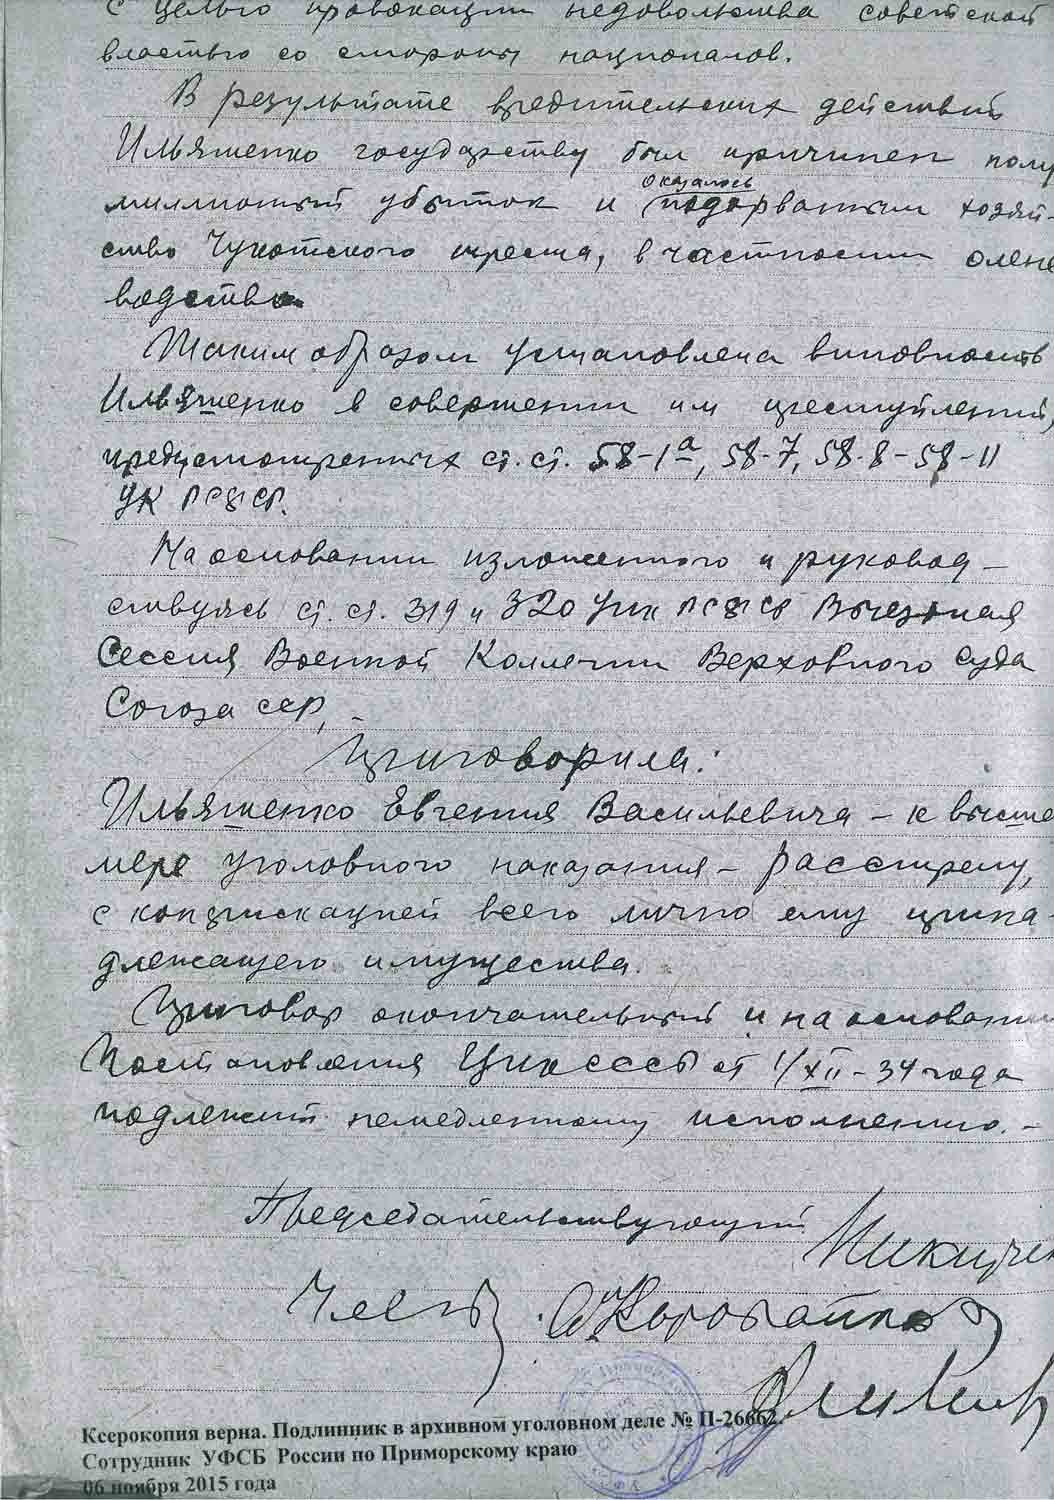 с целью провокации недовольства советской
властью со стороны националов.
В результате вредительских действий
Ильяшенко государству был причинен полу
миллионный убыток и подорванным хозяй-
оказалось
ство Чукотского треста, в частности олене
водство
Таким образом установлена виновность
Ильяшенко в совершении им преступлений,
предусмотренных ст.ст. 58-1а, 58-7, 58-8-58-11
УК РСФСР.
На основании изложенного и руковод-
ствуясь ст. ст. 319 и 320 УПК РСФСР Выездная
Сессия Военной Коллегии Верховного Суда
Союза ССР, -
Приговорила:
Ильяшенко Евгения Васильевича - к высше
мере уголовного наказания - расстрелу,
с конфискацией всего лично ему прина-
длежащего имущества.
Приговор окончательный и на основании
Постановления ЦИК СССР от 1/XII-34 года
подлежит немедленному исполнению. -
Председательствующий
Члены
Ксерокопия верна. Подлинник в архивном уголовном деле № П-26662.
Сотрудник УФСБ России по Приморскому краю
06 ноября 2015 года